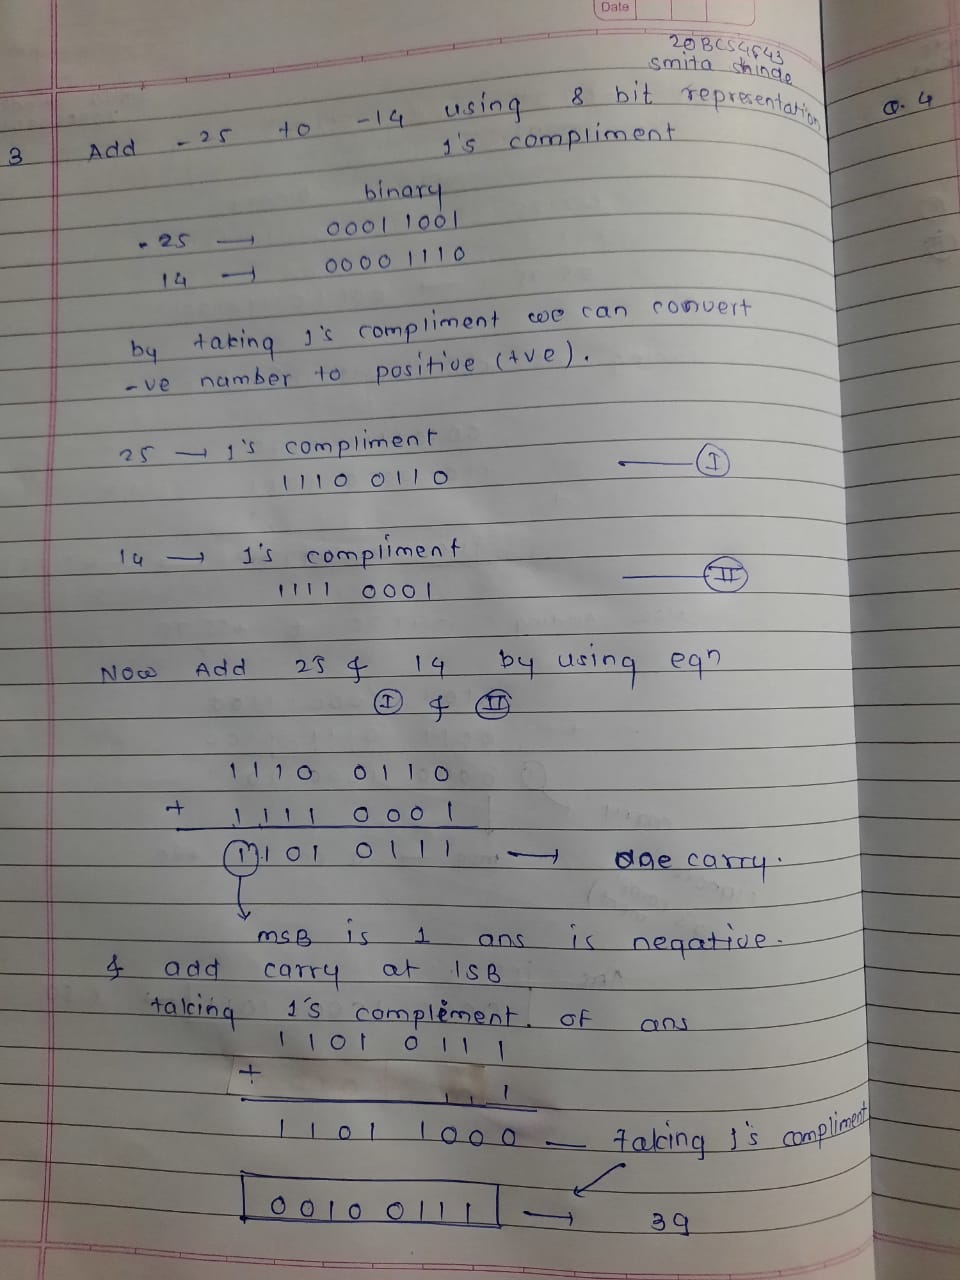 Date
20BCS4643
Smita Shinde
Q. 4
3 Add -25 to -14 using 8 bit representation
1's compliment
binary
- 25 → 0001 1001
14 → 0000 1110
by taking 1's compliment we can convert
-ve number to positive (+ve).
25 → 1's compliment
1110 0110 — I
14 → 1's compliment
1111 0001 — II
Now Add 25 & 14 by using eqn
I & II
1110 0110
+ 1111 0001
1 1 101 0111 → carry.
MSB is 1 ans is negative.
& add carry at LSB
taking 1's complement. of ans
1101 0111
+ 1
1101 1000 — Taking 1's compliment
00100111 → 39